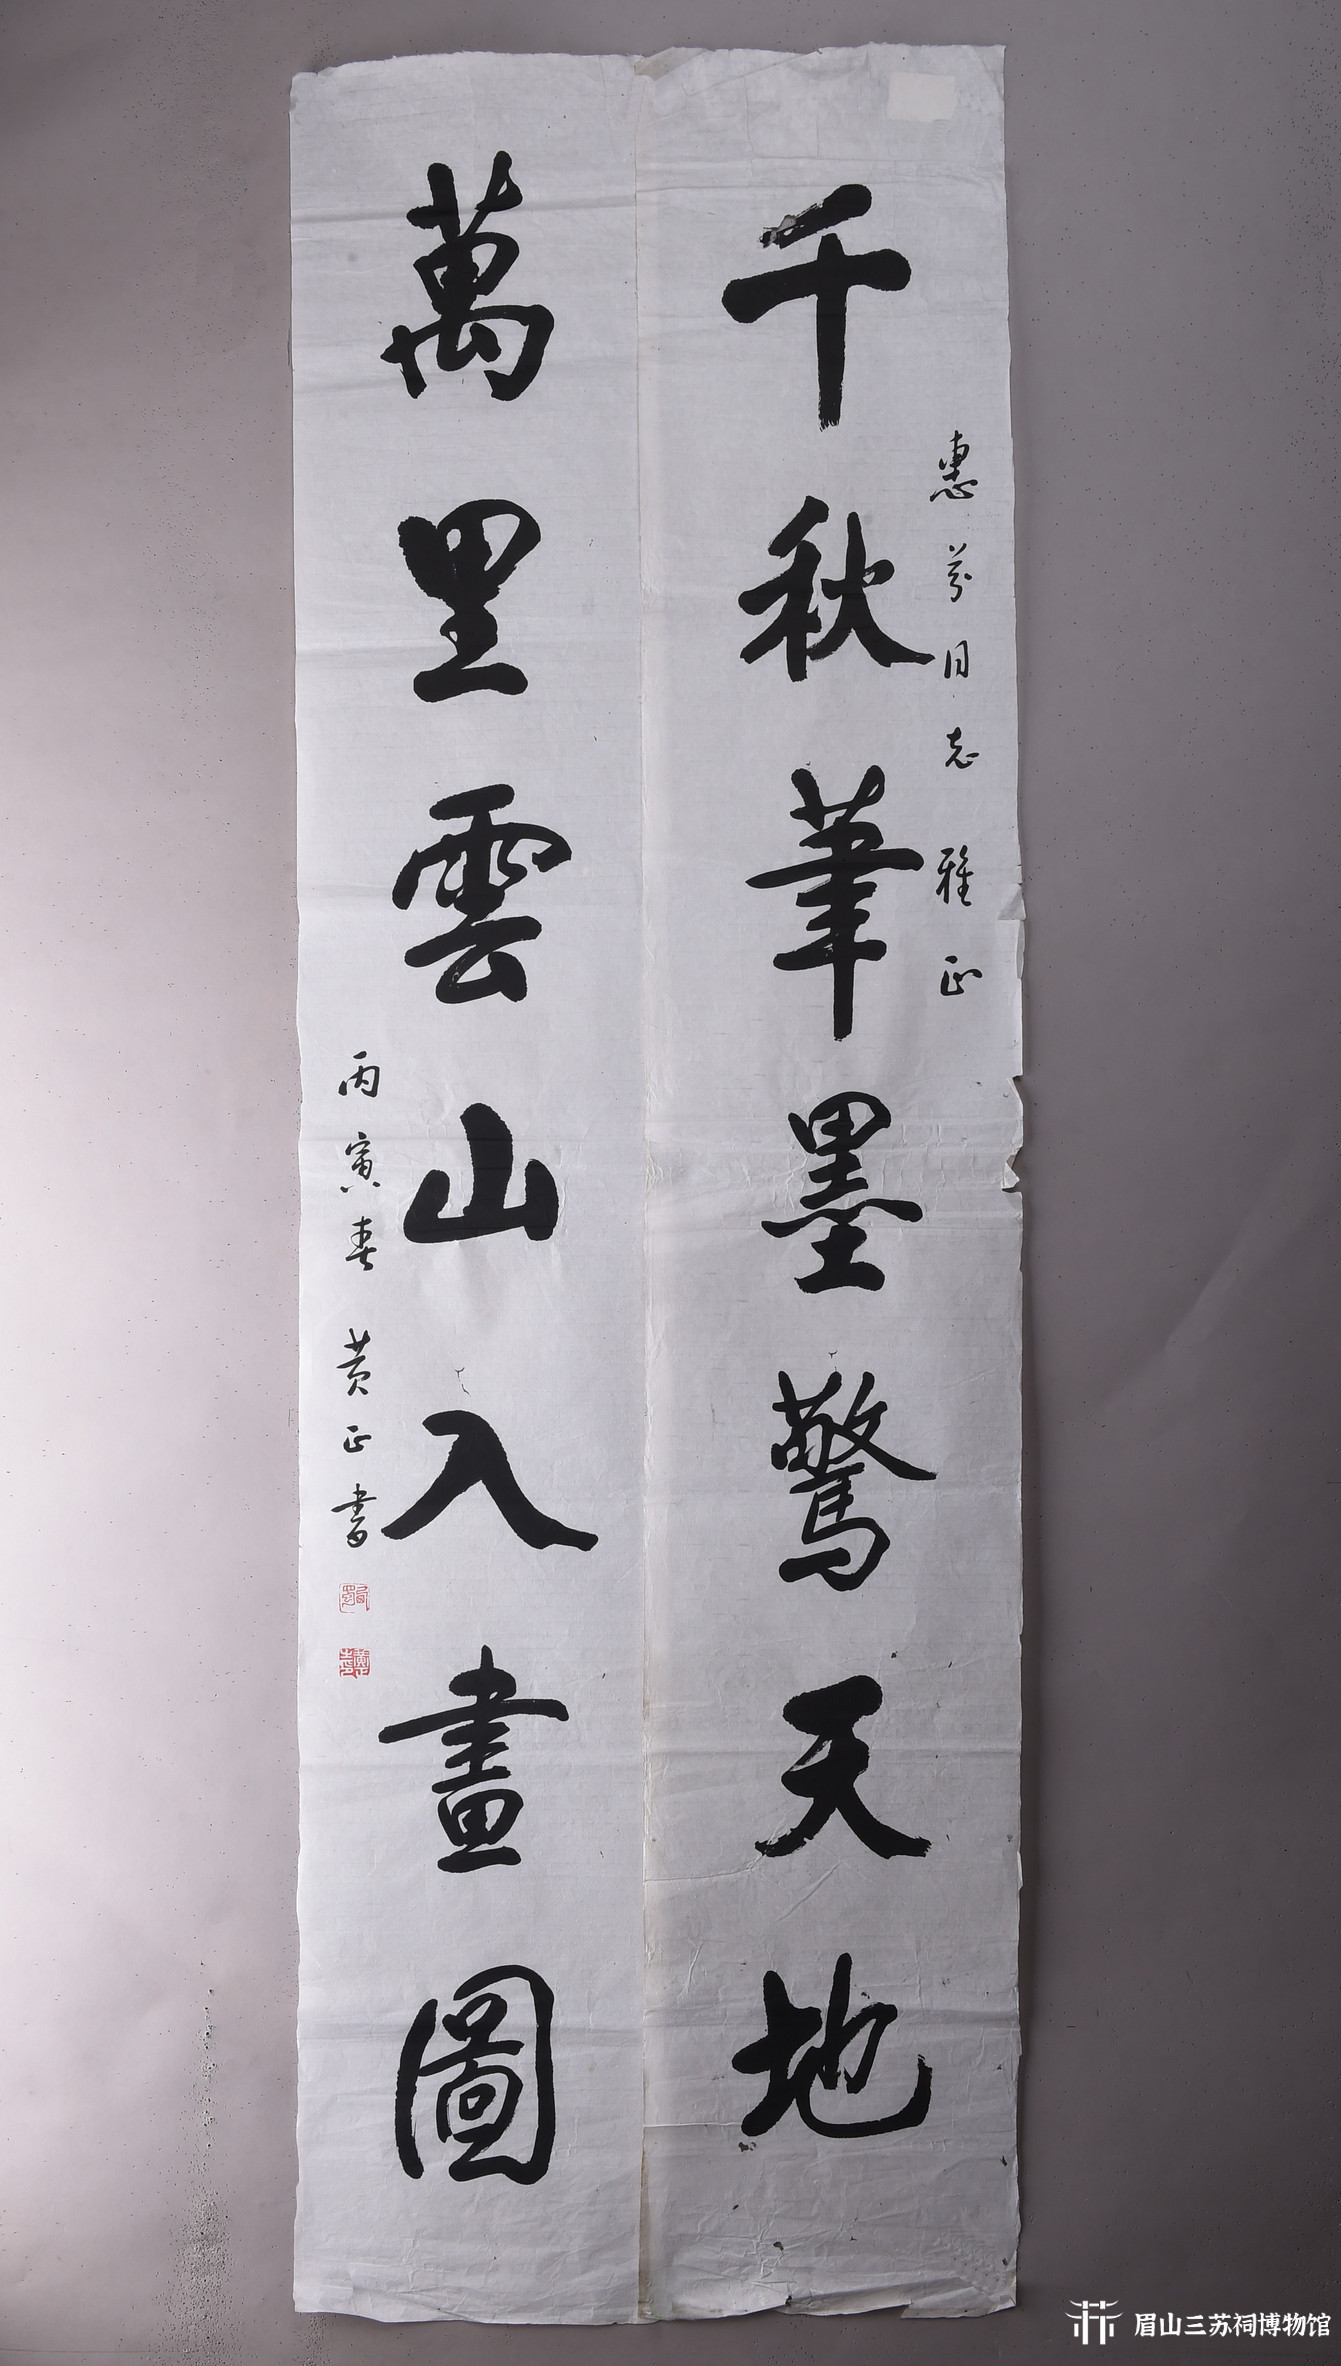 惠芬同志雅正
千秋筆墨驚天地
萬里雲山入畫圖
丙寅春 黄正書
眉山三苏祠博物馆